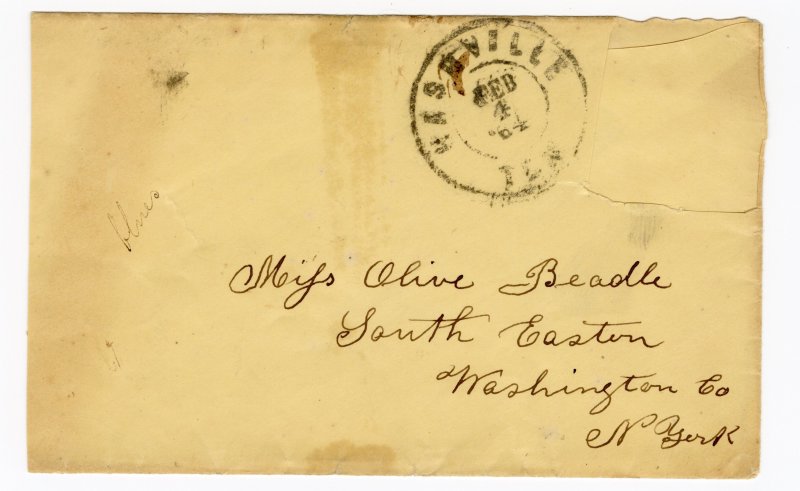 NASHVILLE
FEB
4
'64
TEN
Miss Olive Beadle
South Easton
Washington Co
N York